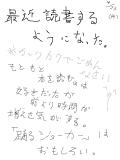 最近読書する
ようになった。
もともと
本を読むのは
好きだったが
前より時間が
増えた気がする。
「踊るジョーカー」は
おもしろい。